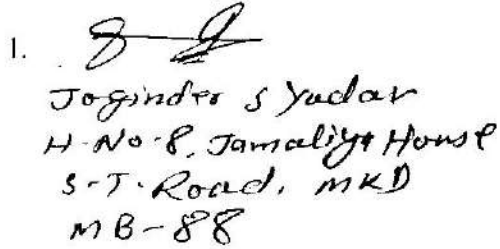 1.
Joginder S Yadav
H-No-8, Jamaliya House
S-T. Road, MKD
MB-88